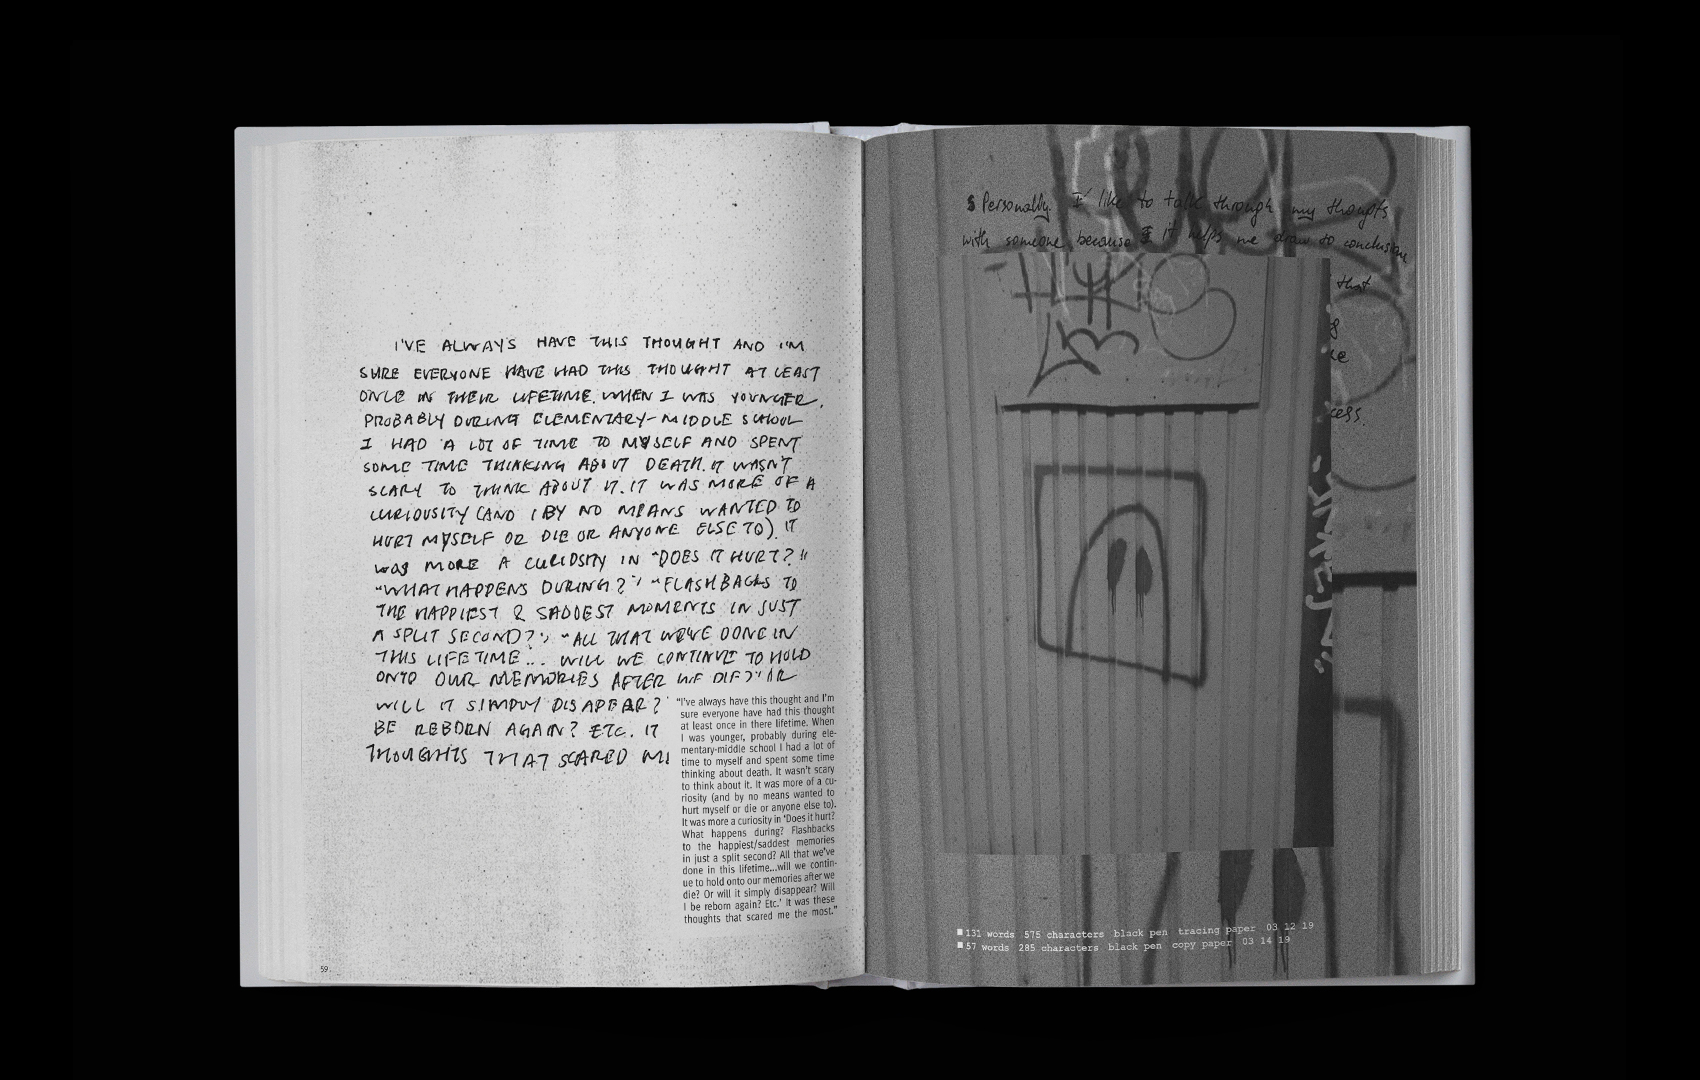 I'VE ALWAYS HAVE THIS THOUGHT AND I'M
SURE EVERYONE HAVE HAD THIS THOUGHT AT LEAST
ONCE IN THEIR LIFETIME. WHEN I WAS YOUNGER,
PROBABLY DURING ELEMENTARY-MIDDLE SCHOOL
I HAD A LOT OF TIME TO MYSELF AND SPENT
SOME TIME THINKING ABOUT DEATH. IT WASN'T
SCARY TO THINK ABOUT IT. IT WAS MORE OF A
CURIOUSITY (AND I BY NO MEANS WANTED TO
HURT MYSELF OR DIE OR ANYONE ELSE TO). IT
WAS MORE A CURIOSITY IN "DOES IT HURT?"
"WHAT HAPPENS DURING?" "FLASHBACKS TO
THE HAPPIEST & SADDEST MOMENTS IN JUST
A SPLIT SECOND?", "ALL THAT WE'VE DONE IN
THIS LIFETIME... WILL WE CONTINUE TO HOLD
ONTO OUR MEMORIES AFTER WE DIE?" OR
WILL IT SIMPLY DISAPPEAR?
BE REBORN AGAIN? ETC. IT
THOUGHTS THAT SCARED
"I've always have this thought and I'm
sure everyone have had this thought
at least once in there lifetime. When
I was younger, probably during ele-
mentary-middle school I had a lot of
time to myself and spent some time
thinking about death. It wasn't scary
to think about it. It was more of a cu-
riosity (and by no means wanted to
hurt myself or die or anyone else to).
It was more a curiosity in 'Does it hurt?
What happens during? Flashbacks
to the happiest/saddest memories
in just a split second? All that we've
done in this lifetime...will we contin-
ue to hold onto our memories after we
die? Or will it simply disappear? Will
I be reborn again? Etc.' It was these
thoughts that scared me the most."
59
Personally, I like to talk through my thougts
with someone because it helps me draw to conclusion
that
cess.
131 words 575 characters black pen tracing paper 03 12 19
57 words 285 characters black pen copy paper 03 14 19